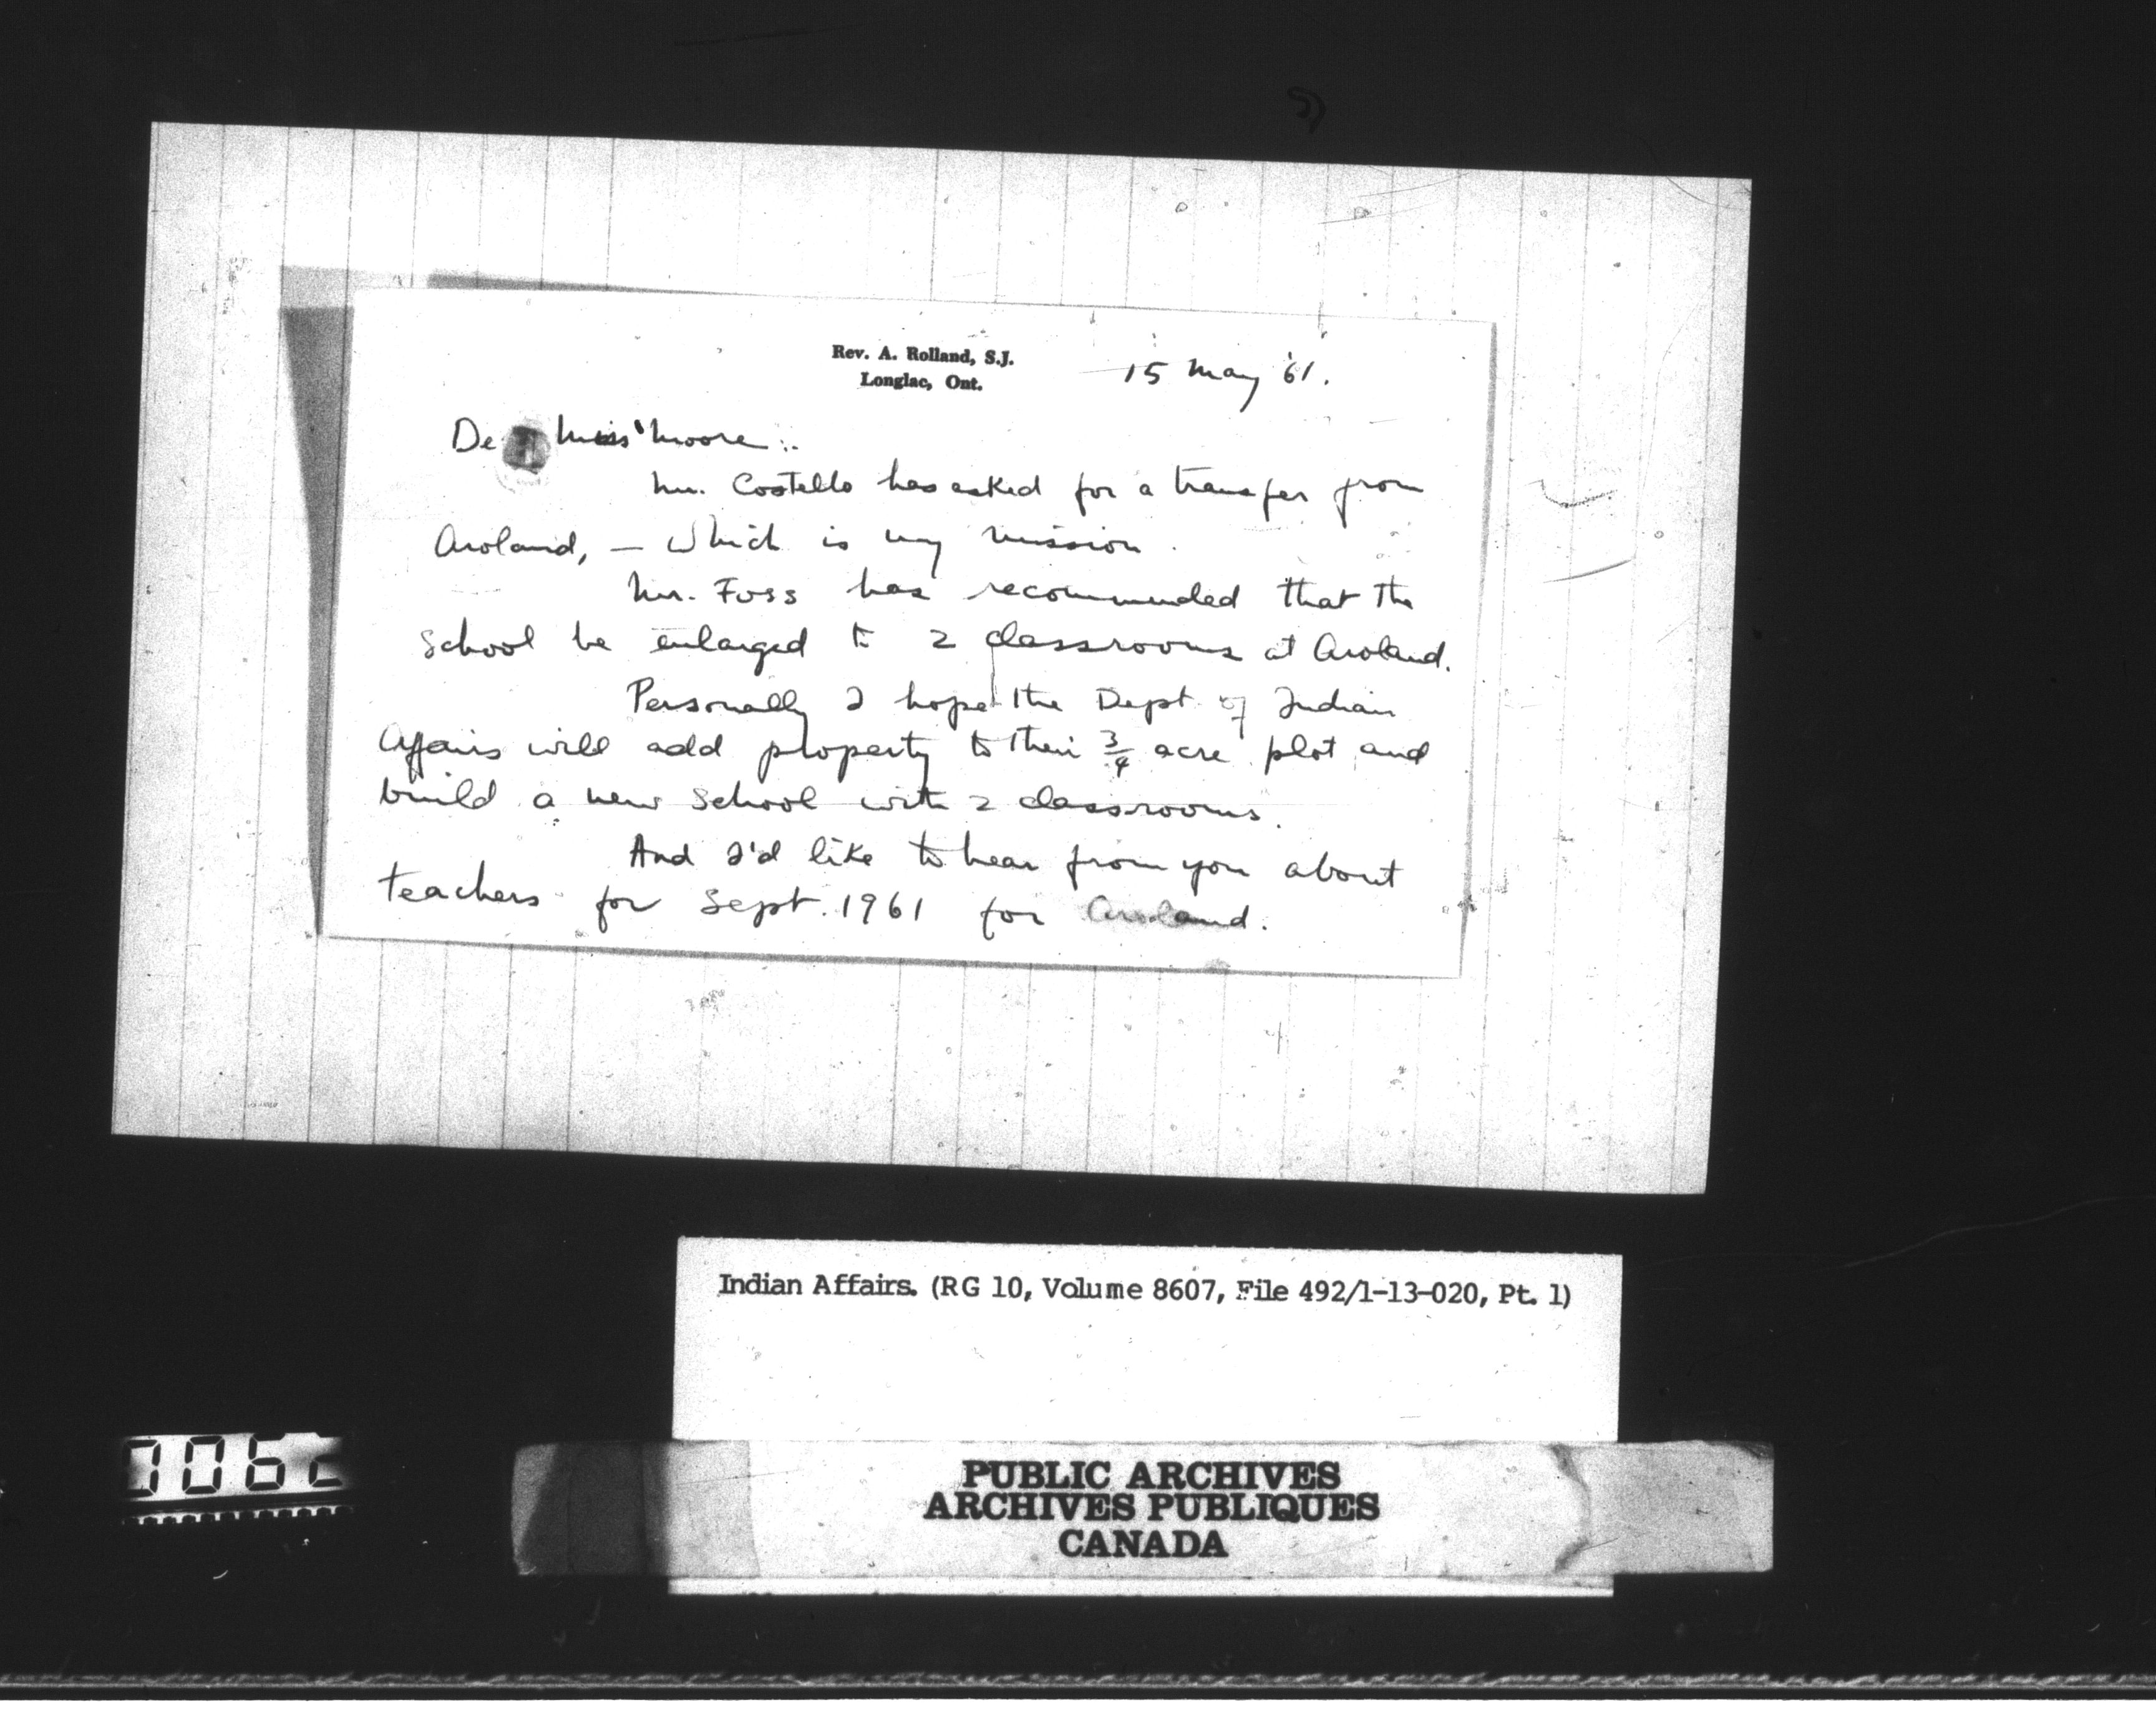 Rev. A. Rolland, S.J.
Longlac, Ont.
15 May '61.
De Miss Moore :-
Mr. Costello has asked for a transfer from
Aroland, – which is my mission.
Mr. Foss has recommended that the
school be enlarged to 2 classrooms at Aroland.
Personally I hope the Dept of Indian
Affairs will add property to their 3/4 acre plot and
build a new school with 2 classrooms.
And I'd like to hear from you about
teachers for Sept. 1961 for Aroland.
Indian Affairs. (RG 10, Volume 8607, File 492/1-13-020, Pt. 1)
PUBLIC ARCHIVES
ARCHIVES PUBLIQUES
CANADA